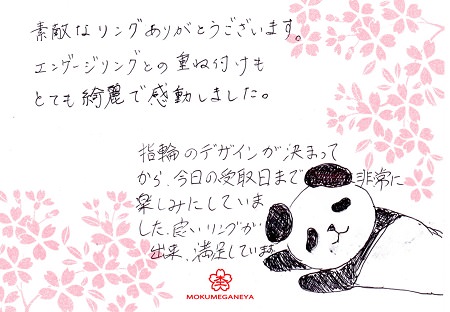 素敵なリングありがとうございます。
エンゲージリングとの重ね付けも
とても綺麗で感動しました。
指輪のデザインが決まって
から、今日の受取日まで 非常に
楽しみにしていま
した。良いリングが
出来、満足しています
MOKUMEGANEYA